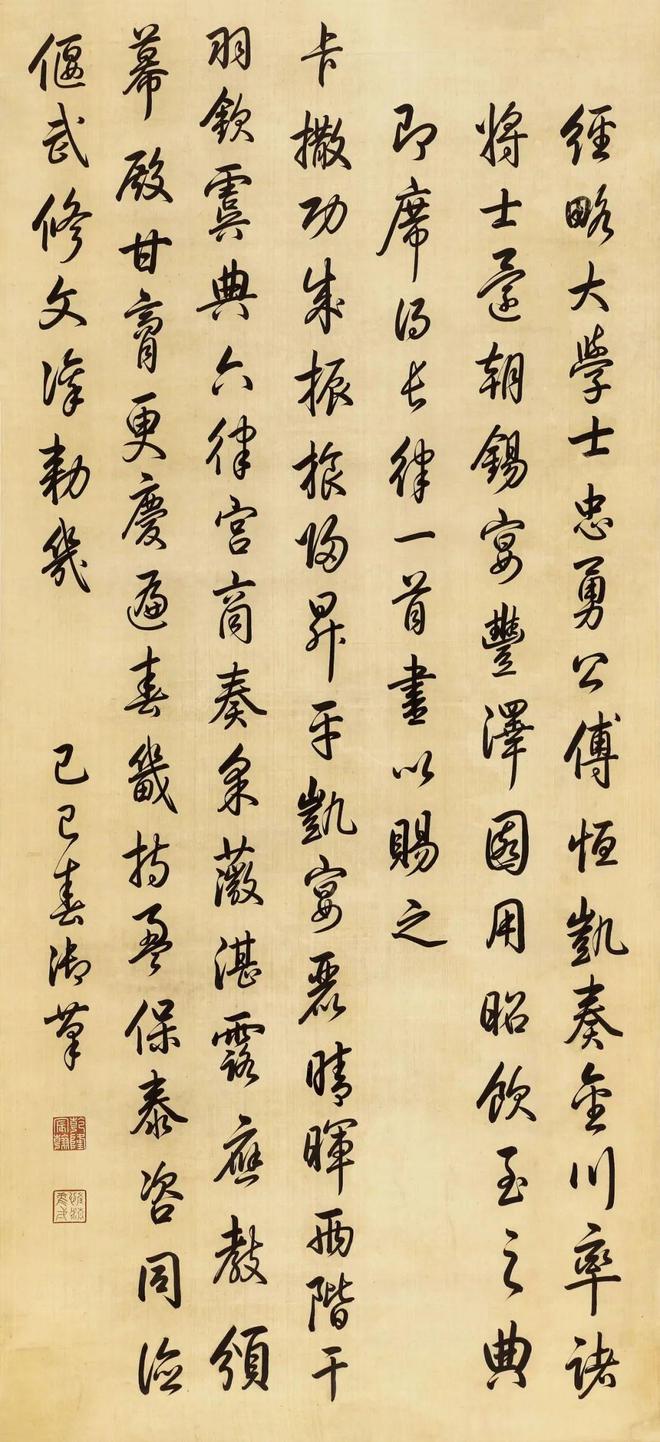 經略大學士忠勇公傅恒凱奏金川率諸
將士還朝錫宴豐澤園用昭飲至之典
即席得長律一首書以賜之
卡撒功成振旅歸昇平凱宴麗晴暉兩階干
羽欽虞典六律宮商奏采薇湛露應教頒
幕殿甘膏更慶遍春畿持盈保泰咨同儉
偃武修文凜勅幾
己巳春御筆
乾隆宸翰